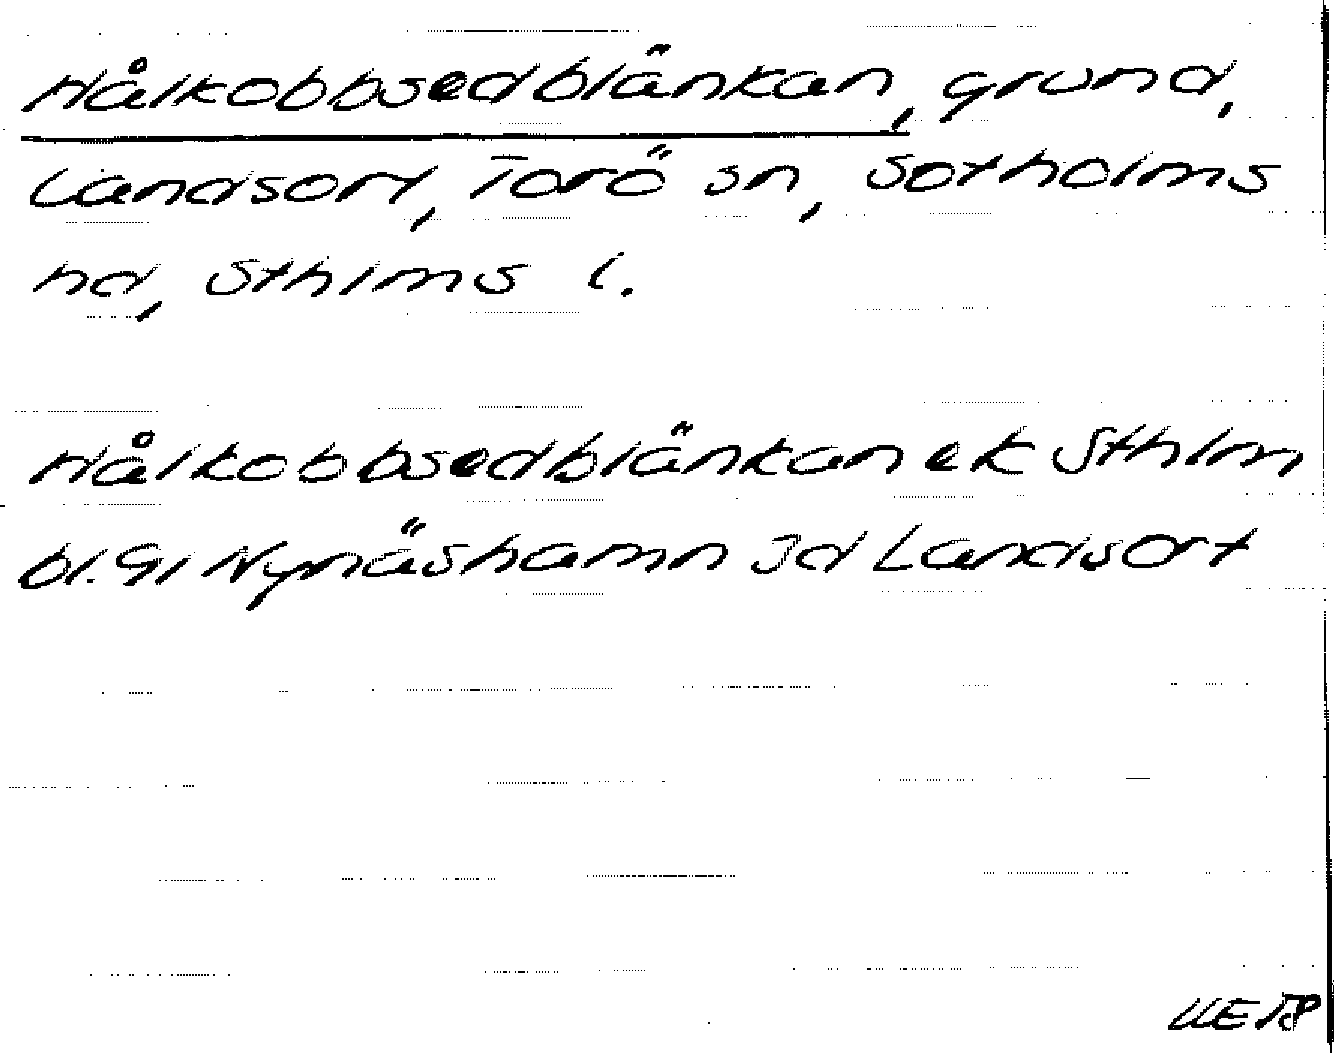 Hålkobbsedblänkan, grund,
Landsort, Torö sn, Sotholms
hd, Sthlms l.
Hålkobbsedblänkan ek Sthlm
bl. 9I Nynäshamn Id Landsort